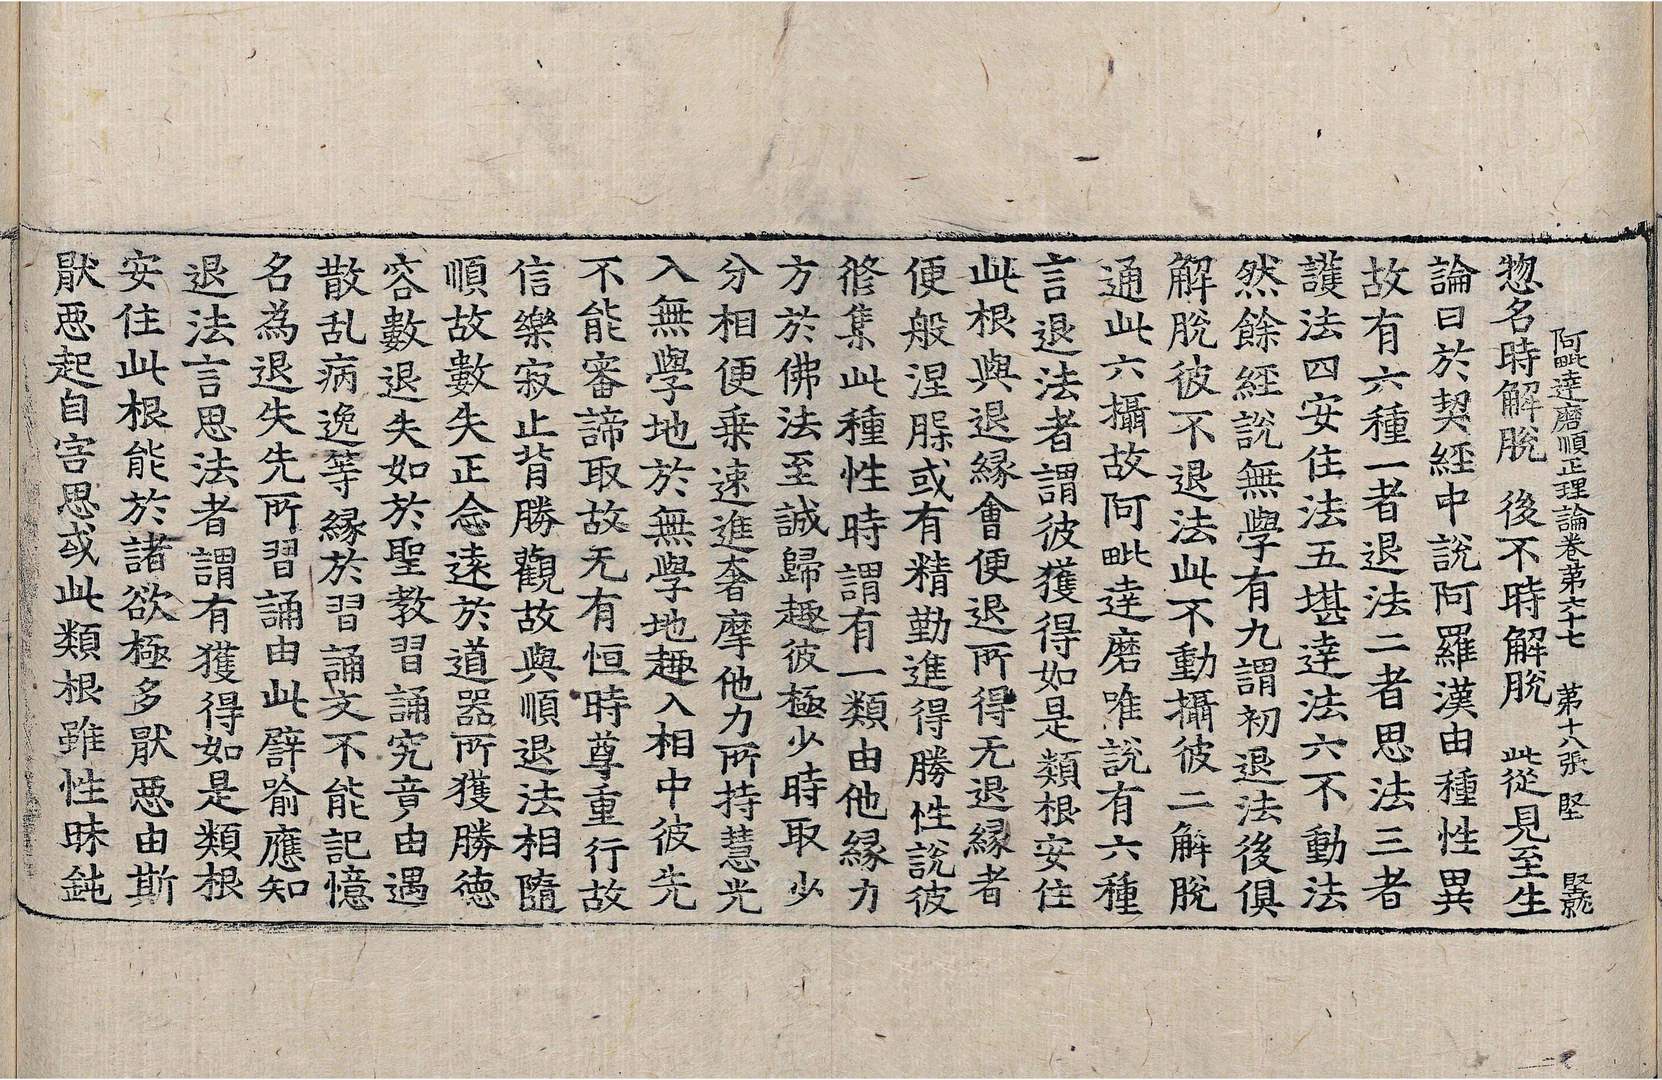 阿毗達磨順正理論卷第六十七　第十八張　堅
惣名時解脫　後不時解脫　此從見至生
論曰於契經中說阿羅漢由種性異
故有六種一者退法二者思法三者
護法四安住法五堪達法六不動法
然餘經說無學有九謂初退法後俱
解脫彼不退法此不動攝彼二解脫
通此六攝故阿毗達磨唯說有六種
言退法者謂彼獲得如是類根安住
此根與退緣會便退所得无退緣者
便般涅槃或有精勤進得勝性說彼
修集此種性時謂有一類由他緣力
方於佛法至誠歸趣彼極少時取少
分相便乗速進奢摩他力所持慧光
入無學地於無學地趣入相中彼先
不能審諦取故无有恒時尊重行故
信樂寂止背勝觀故與順退法相隨
順故數失正念遠於道器所獲勝德
容數退失如於聖教習誦究竟由遇
散乱病逸等緣於習誦文不能記憶
名為退失先所習誦由此譬喻應知
退法言思法者謂有獲得如是類根
安住此根能於諸欲極多猒惡由斯
猒惡起自害思或此類根雖性昧鈍